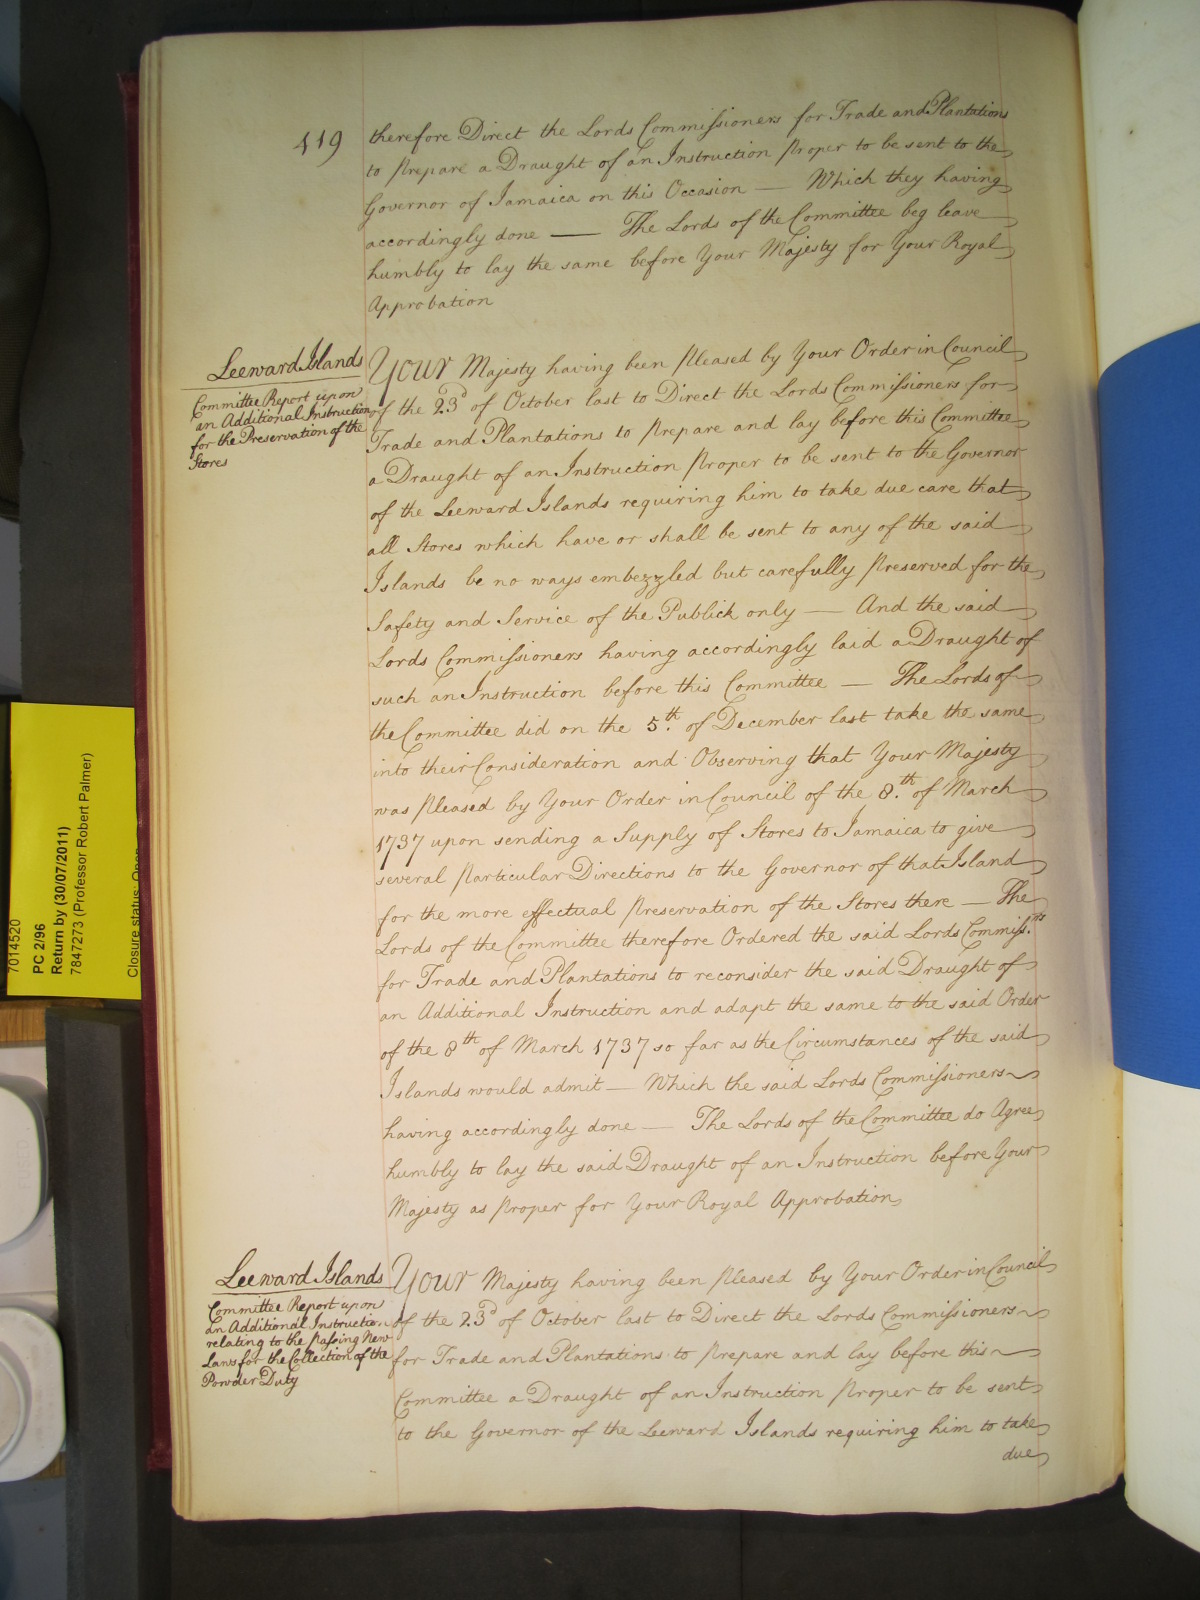 419
therefore Direct the Lords Commissioners for Trade and Plantations
to Prepare a Draught of an Instruction proper to be sent to the
Governor of Jamaica on this Occasion — Which they having
accordingly done — The Lords of the Committee beg leave
humbly to lay the same before Your Majesty for Your Royal
Approbation
Leeward Islands
Committee Report upon
an Additional Instruction
for the Preservation of the
Stores
Your Majesty having been pleased by Your Order in Council
of the 23d of October last to Direct the Lords Commissioners for
Trade and Plantations to prepare and lay before this Committee
a Draught of an Instruction proper to be sent to the Governor
of the Leeward Islands requiring him to take due care that
all Stores which have or shall be sent to any of the said
Islands be no ways embezzled but carefully preserved for the
Safety and Service of the Publick only — And the said
Lords Commissioners having accordingly laid a Draught of
such an Instruction before this Committee — The Lords of
the Committee did on the 5th. of December last take the same
into their Consideration and Observing that Your Majesty
was pleased by Your Order in Council of the 8.th of March
1737 upon sending a Supply of Stores to Jamaica to give
several particular Directions to the Governor of that Island
for the more effectual preservation of the Stores there — The
Lords of the Committee therefore Ordered the said Lords Commiss.rs
for Trade and Plantations to reconsider the said Draught of
an Additional Instruction and adapt the same to the said Order
of the 8th of March 1737 so far as the Circumstances of the said
Islands would admit — Which the said Lords Commissioners
having accordingly done — The Lords of the Committee do Agree
humbly to lay the said Draught of an Instruction before Your
Majesty as proper for Your Royal Approbation
Leeward Islands
Committee Report upon
an Additional Instruction
relating to the passing New
Laws for the Collection of the
Powder Duty
Your Majesty having been pleased by Your Order in Council
of the 23d of October last to Direct the Lords Commissioners
for Trade and Plantations to prepare and lay before this
Committee a Draught of an Instruction proper to be sent
to the Governor of the Leeward Islands requiring him to take
due
7014520
PC 2/96
Return by (30/07/2011)
7847273 (Professor Robert Palmer)
Closure status: Open